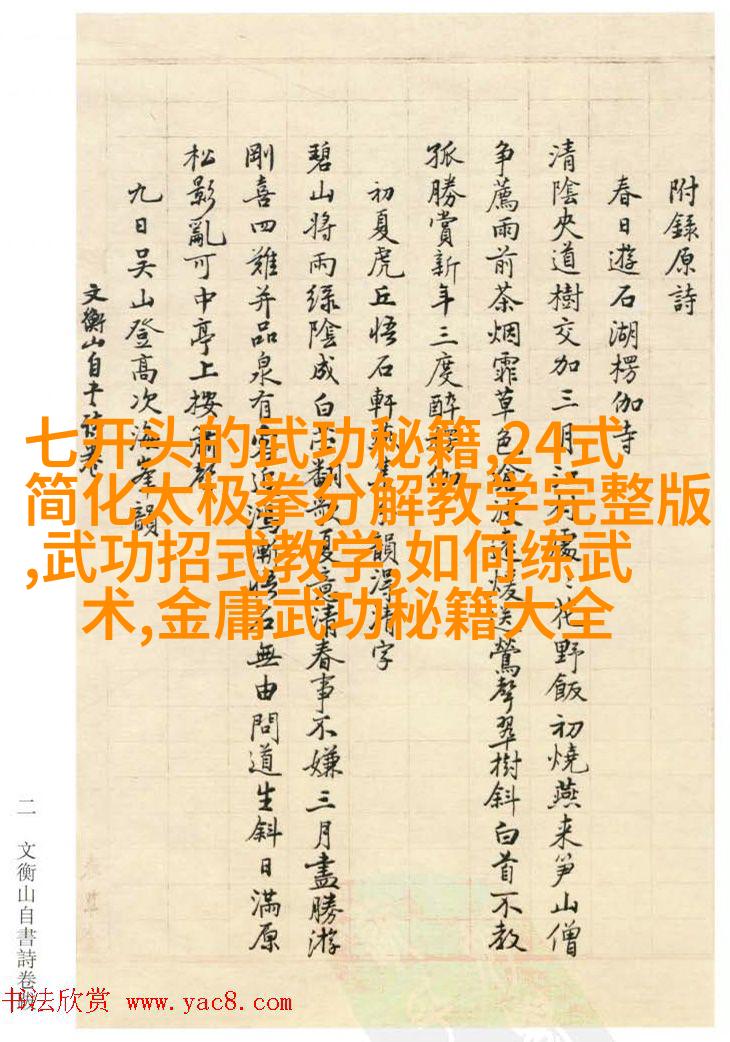 附錄原詩
春日遊石湖楞伽寺
清陰夾道樹交加三月處〻花野飯初燒燕来笋山僧
争薦雨前茶烟霏草色煖送鶯聲翠樹斜白首不教
孤勝賞新年三度醉楞伽
初夏虎丘悟石軒集韻得清字
碧山將雨緑陰成白苧翻歌夏意清春事不嫌三月盡勝游
剛喜四難并品泉有客悟石無由問道生斜日滿原
松影亂可中亭上按簫聲
九日吴山登高次海峯韻
文衡山自書诗卷
二 文衡山自書詩卷跋
七开头的武功秘籍,24式
简化太极拳分解教学完整版
,武功招式教学,如何练武
术,金庸武功秘籍大全
书法欣赏 www.yac8.com